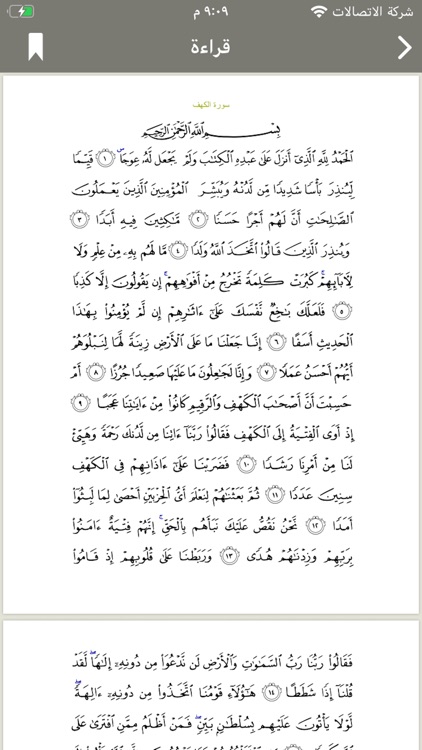 شركة الاتصالات ٩:٠٩ م
قراءة
سورة الكهف
بِسْمِ اللَّهِ الرَّحْمَٰنِ الرَّحِيمِ
الْحَمْدُ لِلَّهِ الَّذِي أَنزَلَ عَلَىٰ عَبْدِهِ الْكِتَابَ وَلَمْ يَجْعَل لَّهُ عِوَجًا ۜ ١ قَيِّمًا
لِّيُنذِرَ بَأْسًا شَدِيدًا مِّن لَّدُنْهُ وَيُبَشِّرَ الْمُؤْمِنِينَ الَّذِينَ يَعْمَلُونَ
الصَّالِحَاتِ أَنَّ لَهُمْ أَجْرًا حَسَنًا ٢ مَّاكِثِينَ فِيهِ أَبَدًا ٣
وَيُنذِرَ الَّذِينَ قَالُوا اتَّخَذَ اللَّهُ وَلَدًا ٤ مَّا لَهُم بِهِ مِنْ عِلْمٍ وَلَا
لِآبَائِهِمْ ۚ كَبُرَتْ كَلِمَةً تَخْرُجُ مِنْ أَفْوَاهِهِمْ ۚ إِن يَقُولُونَ إِلَّا كَذِبًا
٥ فَلَعَلَّكَ بَاخِعٌ نَّفْسَكَ عَلَىٰ آثَارِهِمْ إِن لَّمْ يُؤْمِنُوا بِهَٰذَا
الْحَدِيثِ أَسَفًا ٦ إِنَّا جَعَلْنَا مَا عَلَى الْأَرْضِ زِينَةً لَّهَا لِنَبْلُوَهُمْ
أَيُّهُمْ أَحْسَنُ عَمَلًا ٧ وَإِنَّا لَجَاعِلُونَ مَا عَلَيْهَا صَعِيدًا جُرُزًا ٨ أَمْ
حَسِبْتَ أَنَّ أَصْحَابَ الْكَهْفِ وَالرَّقِيمِ كَانُوا مِنْ آيَاتِنَا عَجَبًا ٩
إِذْ أَوَى الْفِتْيَةُ إِلَى الْكَهْفِ فَقَالُوا رَبَّنَا آتِنَا مِن لَّدُنكَ رَحْمَةً وَهَيِّئْ
لَنَا مِنْ أَمْرِنَا رَشَدًا ١٠ فَضَرَبْنَا عَلَىٰ آذَانِهِمْ فِي الْكَهْفِ
سِنِينَ عَدَدًا ١١ ثُمَّ بَعَثْنَاهُمْ لِنَعْلَمَ أَيُّ الْحِزْبَيْنِ أَحْصَىٰ لِمَا لَبِثُوا
أَمَدًا ١٢ نَّحْنُ نَقُصُّ عَلَيْكَ نَبَأَهُم بِالْحَقِّ ۚ إِنَّهُمْ فِتْيَةٌ آمَنُوا
بِرَبِّهِمْ وَزِدْنَاهُمْ هُدًى ١٣ وَرَبَطْنَا عَلَىٰ قُلُوبِهِمْ إِذْ قَامُوا
فَقَالُوا رَبُّنَا رَبُّ السَّمَاوَاتِ وَالْأَرْضِ لَن نَّدْعُوَ مِن دُونِهِ إِلَٰهًا ۖ لَّقَدْ
قُلْنَا إِذًا شَطَطًا ١٤ هَٰؤُلَاءِ قَوْمُنَا اتَّخَذُوا مِن دُونِهِ آلِهَةً ۖ
لَّوْلَا يَأْتُونَ عَلَيْهِم بِسُلْطَانٍ بَيِّنٍ ۖ فَمَنْ أَظْلَمُ مِمَّنِ افْتَرَىٰ عَلَى